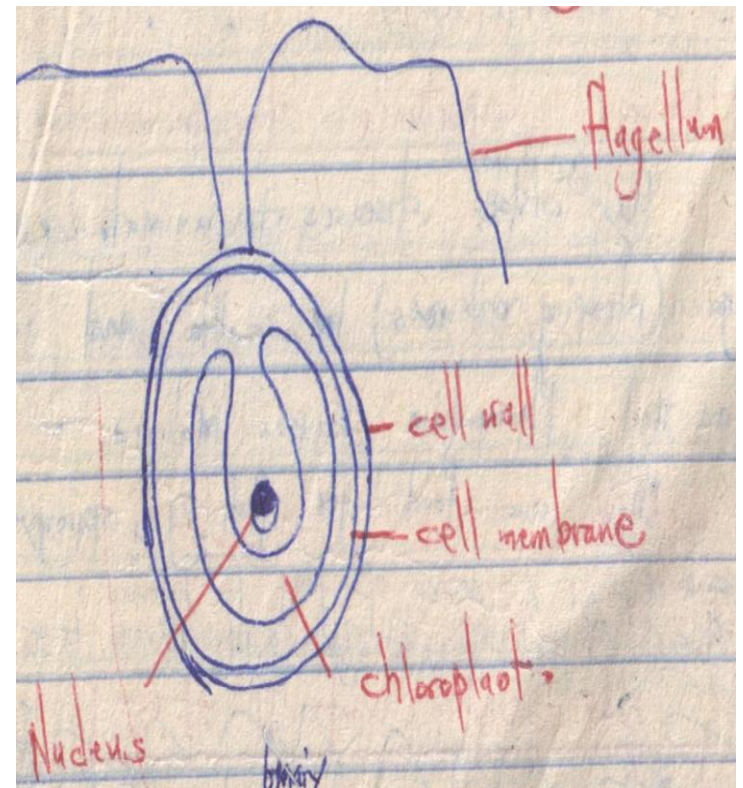 flagellum
cell wall
cell membrane
chloroplast.
Nucleus